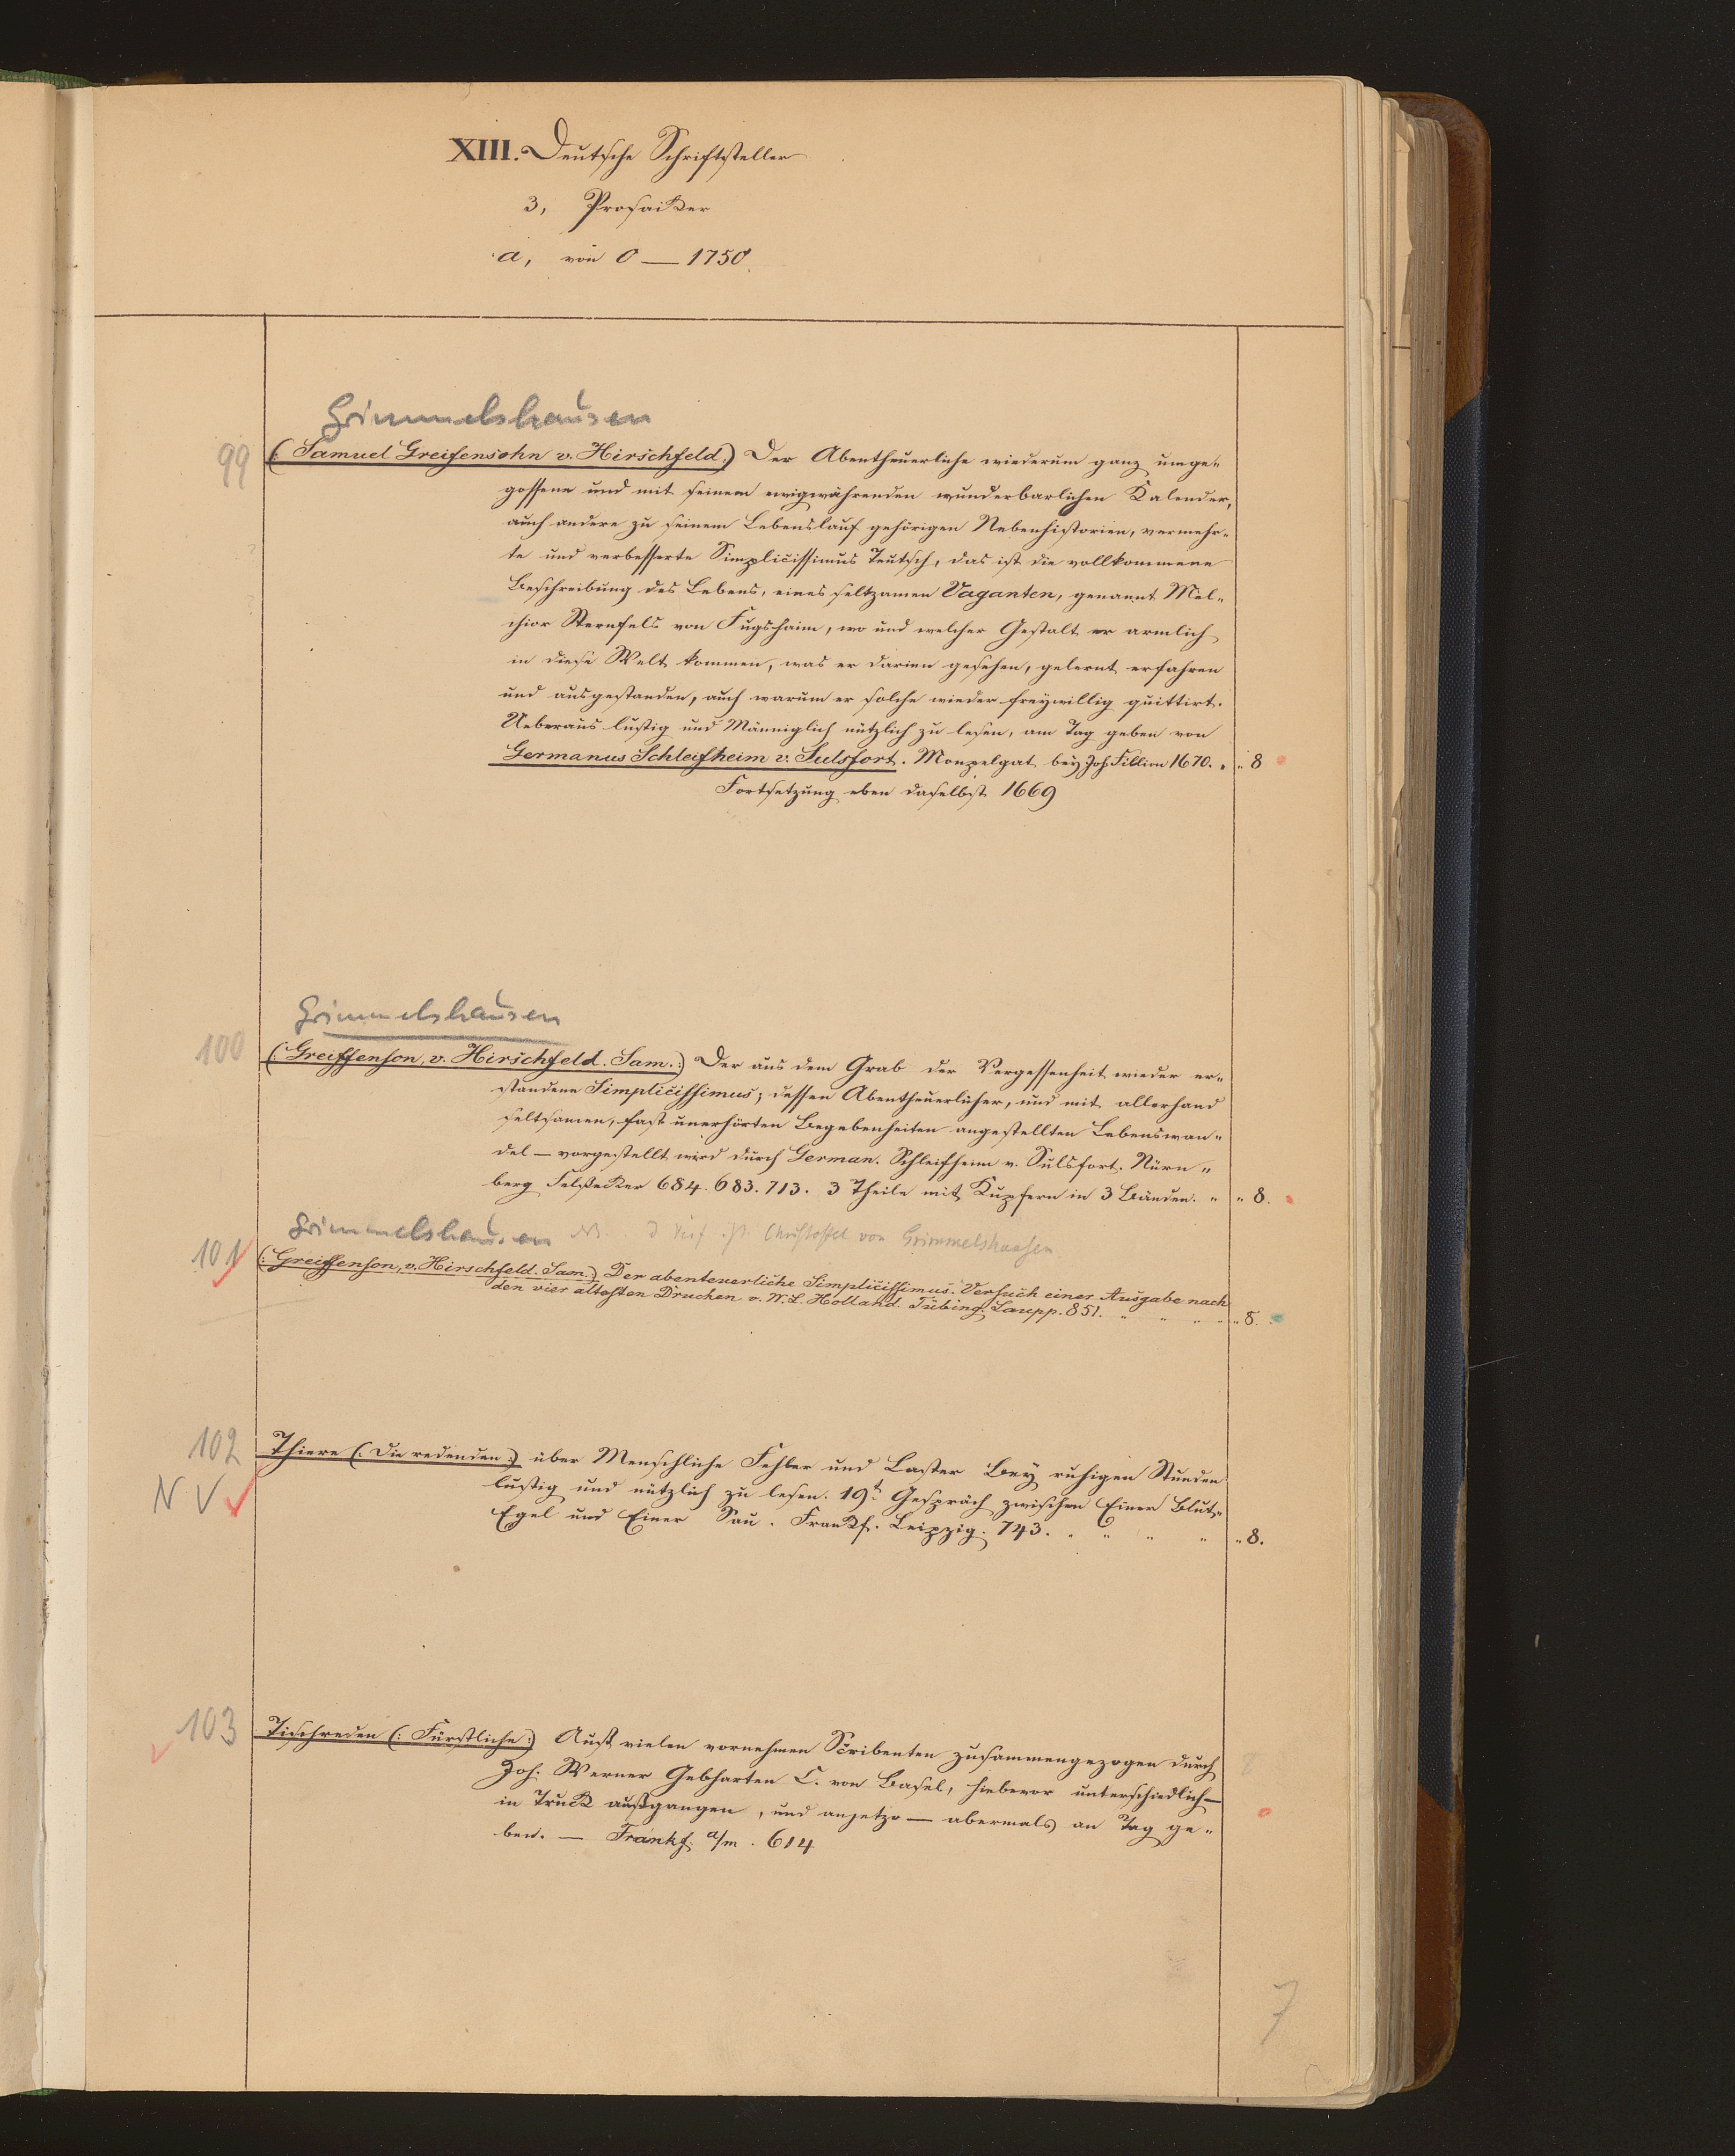 XIII. Deutsche Schriftsteller
3, Prosaiker
a, von 0 — 1750.
Grimmelshausen
99 (: Samuel Greifensohn v. Hirschfeld:) Der Abentheuerliche wiederum ganz umge„
gossene und mit seinem ewigwährenden wunderbarlichen Kalender,
auch andere zu seinem Lebenslauf gehörigen Nebenhistorien, vermehr„
te und verbesserte Simplicissimus Teutsch, das ist die vollkommene
Beschreibung des Lebens, eines seltzamen Vaganten, genannt Mel„
chior Sternfels von Fugshaim, wo und welcher Gestalt er armlich
in diese Welt kommen, was er darinn gesehen, gelernt erfahren
und ausgestanden, auch warum er solche wieder freywillig quittirt.
Ueberaus lustig und Männiglich nützlich zu lesen, am Tag geben von
Germanus Schleifheim v. Sulsfort. Monpelgat bey Joh. Fillion 1670. „ „ 8
Fortsetzung eben daselbst 1669
Grimmelshausen
100 (: Greiffenson, v. Hirschfeld. Sam.:) Der aus dem Grab der Vergessenheit wieder er„
standene Simplicissimus; dessen Abentheuerlicher, und mit allerhand
seltsamen, fast unerhörten Begebenheiten angestellten Lebenswan„
del — vorgestellt wird durch German. Schleifheim v. Sulsfort. Nürn„
berg Felßecker 684. 683. 713. 3 Theile mit Kupfern in 3 Bänden. „ „ 8.
Grimmelshausen NB. ist Christoffel von Grimmelshausen.
101 (: Greiffenson, v. Hirschfeld. Sam.:) Der abenteuerliche Simplicissimus. Versuch einer Ausgabe nach
den vier ältesten Drucken v. W. L. Holland. Tübing. Laupp. 851. „ „ „ „ „ 8.
102 Thiere (: Die redenden:) über Menschliche Fehler und Laster Bey ruhigen Stunden
N V lustig und nützlich zu lesen. 19t. Gespräch zwischen Einer Blut„
Egel und Einer Sau. Frankf. Leipzig. 743. „ „ „ „ „ 8.
103 Tischreden (: Fürstliche:) Auß vielen vornehmen Scribenten zusammengezogen durch
Joh. Werner Gebharten C. von Basel, hiebevor unterschiedlich
in Truck außgangen, und anjetzo — abermals an Tag ge„
ben. — Frankf. a/m. 614
7